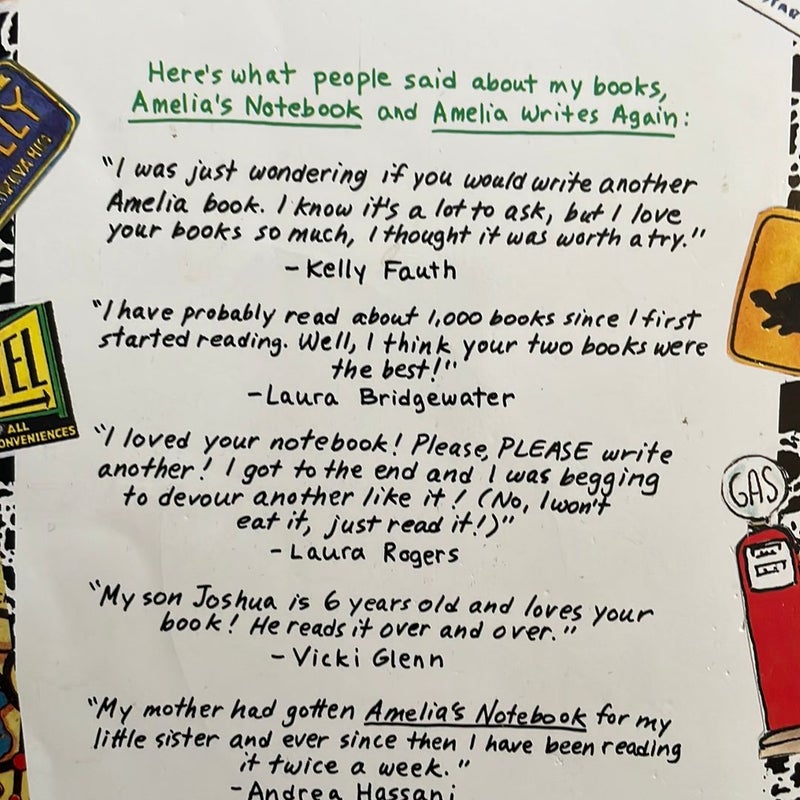 Here's what people said about my books,
Amelia's Notebook and Amelia Writes Again:
"I was just wondering if you would write another
Amelia book. I know it's a lot to ask, but I love
your books so much, I thought it was worth a try."
-Kelly Fauth
"I have probably read about 1,000 books since I first
started reading. Well, I think your two books were
the best!"
-Laura Bridgewater
"I loved your notebook! Please, PLEASE write
another! I got to the end and I was begging
to devour another like it! (No, I won't
eat it, just read it!)"
-Laura Rogers
"My son Joshua is 6 years old and loves your
book! He reads it over and over."
-Vicki Glenn
"My mother had gotten Amelia's Notebook for my
little sister and ever since then I have been reading
it twice a week."
-Andrea Hassani
ALL
GAS